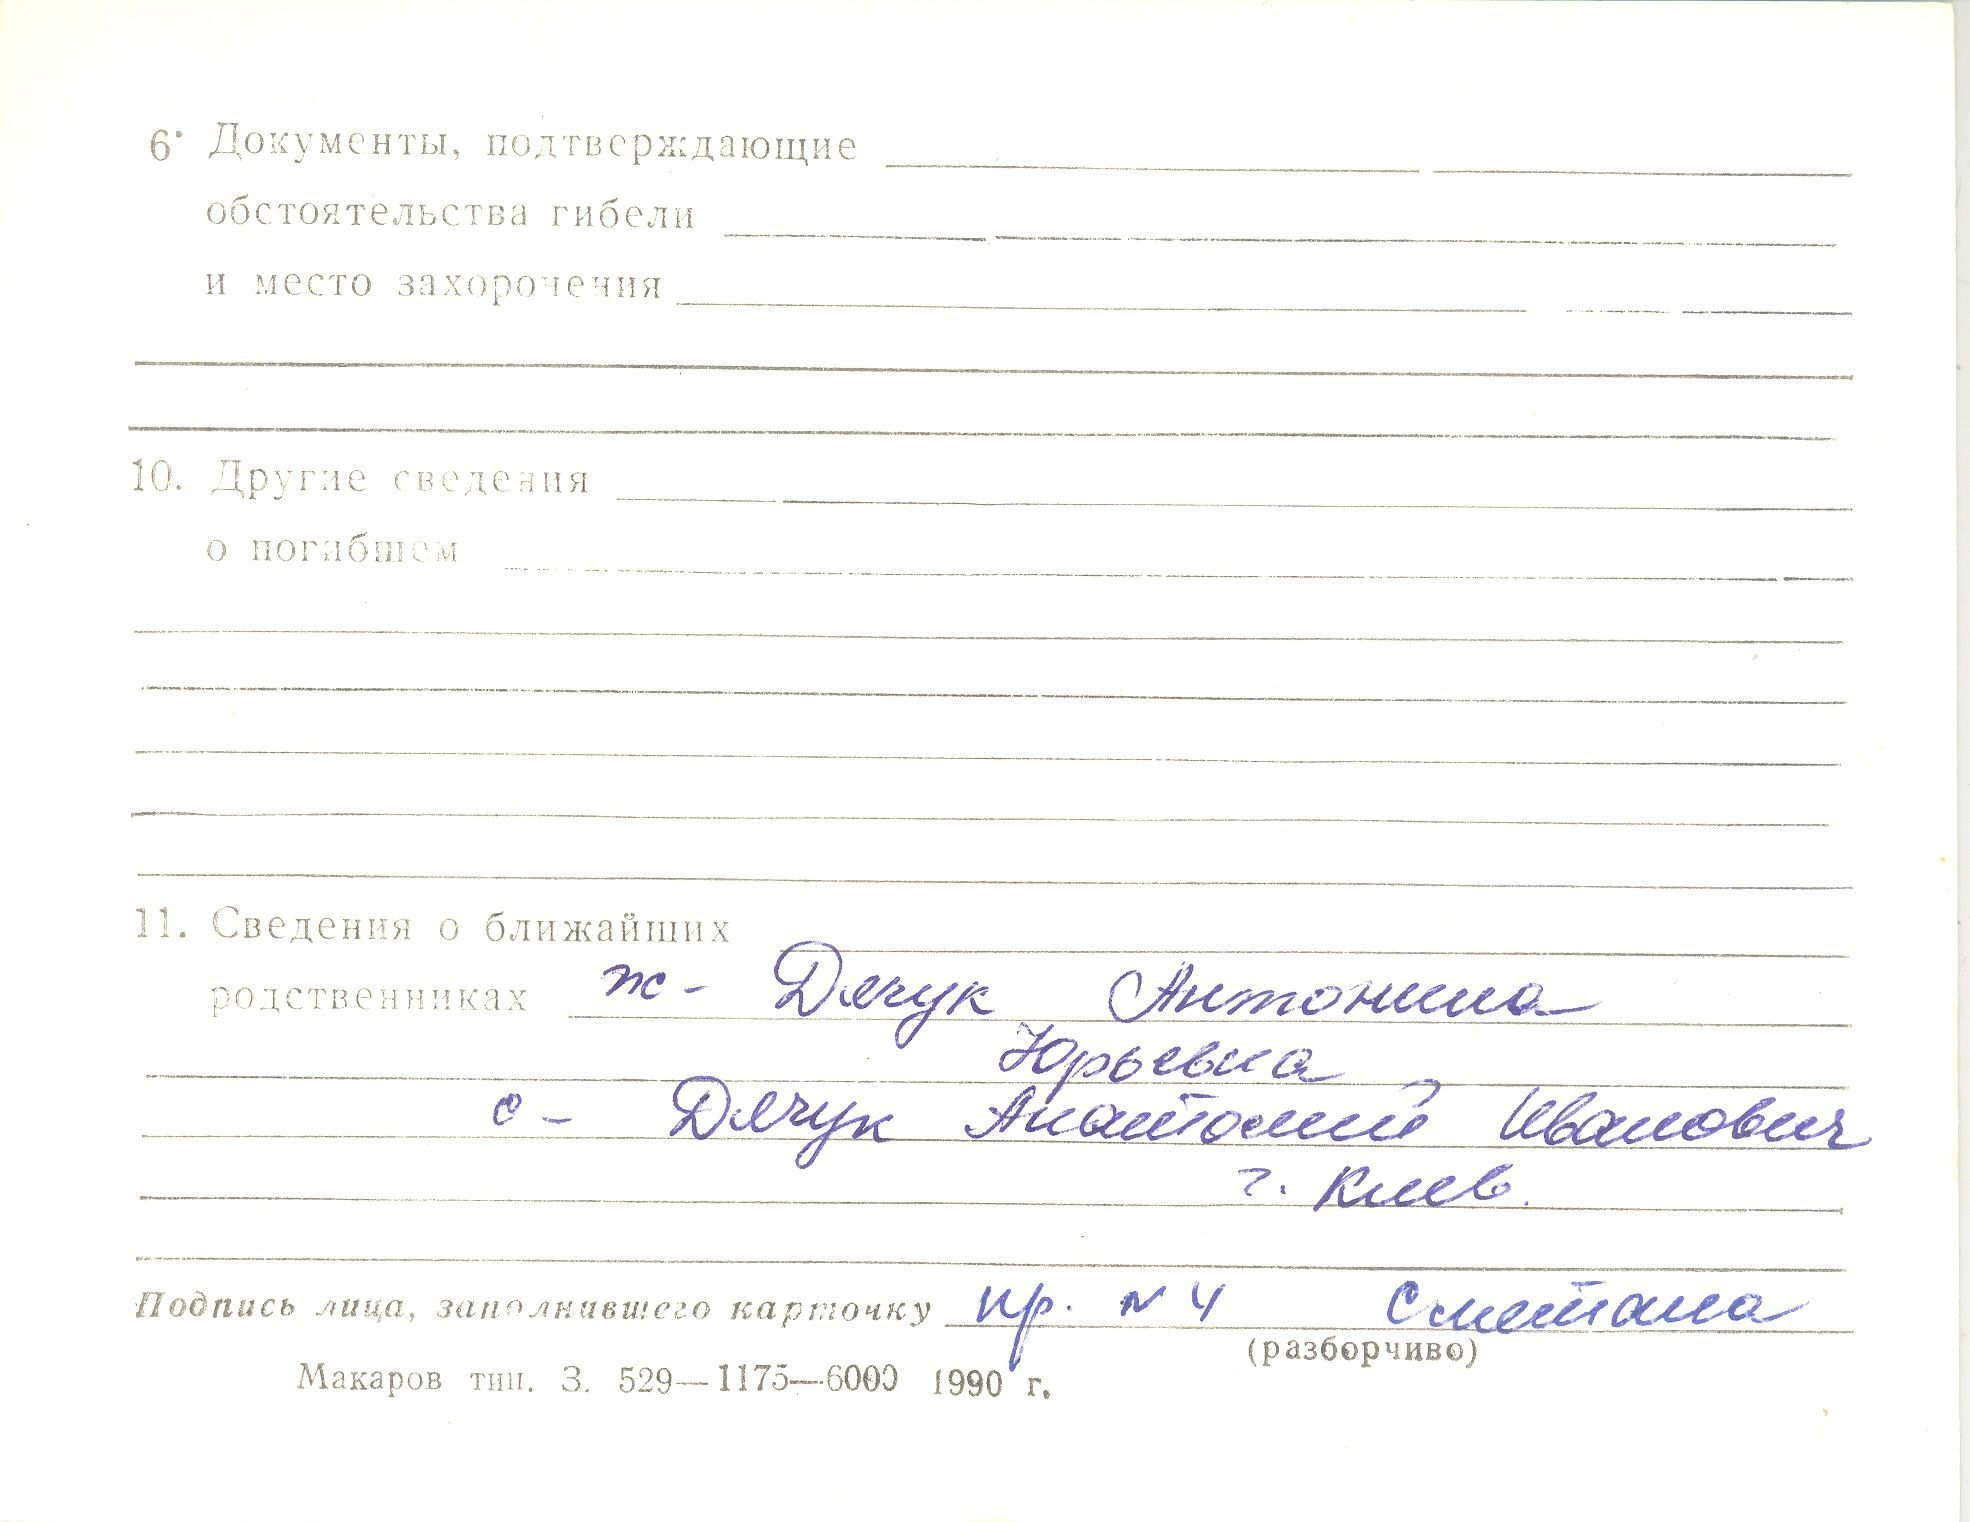 6. Документы, подтверждающие
обстоятельства гибели
и место захорочения
10. Другие сведения
о погибшем
11. Сведения о ближайших
родственниках ж - Дячук Антонина
Юрьевна
с - Дячук Анатолий Иванович
г. Киев.
Подпись лица, заполнившего карточку пр. N 4 Сметана
(разборчиво)
Макаров тип. З. 529—1175—6000 1990 г.